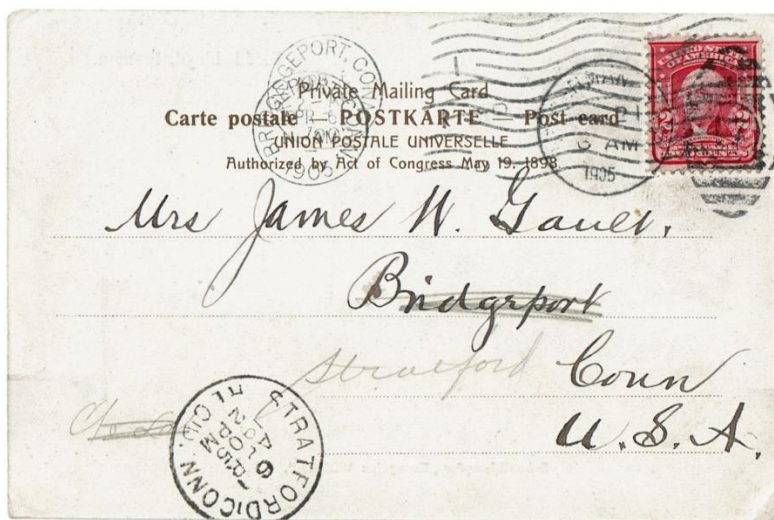 Private Mailing Card
Carte postale — POSTKARTE — Post card
UNION POSTALE UNIVERSELLE.
Authorized by Act of Congress May 19. 1898
BRIDGEPORT, CONN.
1905
6 AM
1905
UNITED STATES
OF AMERICA
2 2
Mrs James W. Gault.
Bridgeport
Stratford Conn
U.S.A.
STRATFORD CONN.
REC'D.